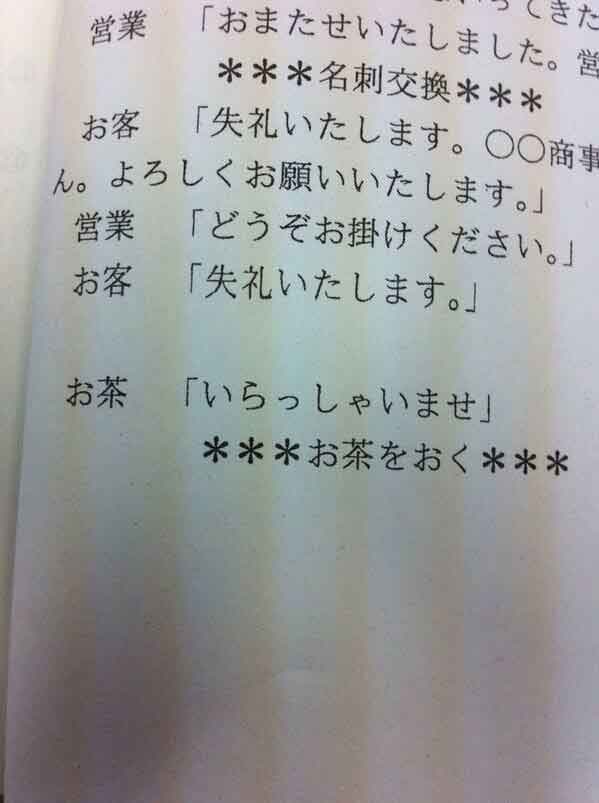 いってきた
営業 「おまたせいたしました。営
＊＊＊名刺交換＊＊＊
お客 「失礼いたします。〇〇商事
ん。よろしくお願いいたします。」
営業 「どうぞお掛けください。」
お客 「失礼いたします。」
お茶 「いらっしゃいませ」
＊＊＊お茶をおく＊＊＊